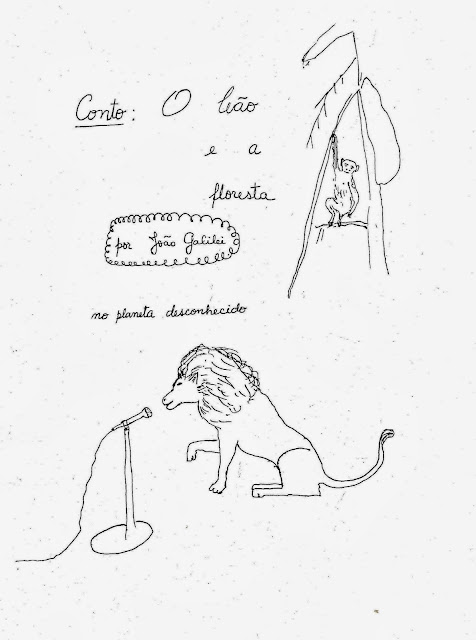 Conto: O leão
e a
floresta
por João Galilei
no planeta desconhecido